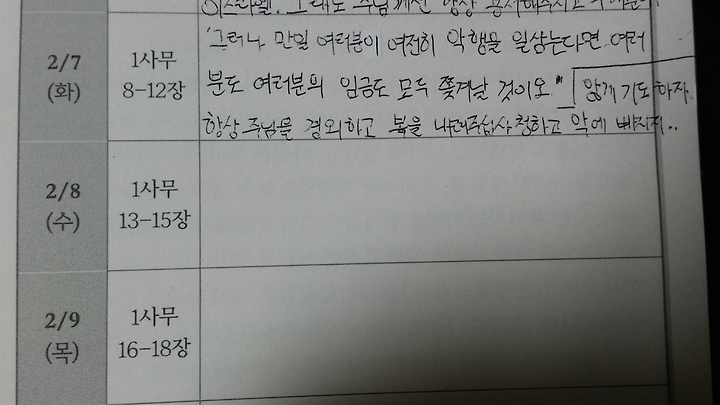 이스라엘. 그래도 주님께선 항상 용서해주시고
2/7
(화)
1사무
8-12장
"그러나 만일 여러분이 여전히 악행을 일삼는다면 여러
분도 여러분의 임금도 모두 쫓겨날 것이오." 않게 기도하자.
항상 주님을 경외하고 복을 내려주십사 청하고 악에 빠지지..
2/8
(수)
1사무
13-15장
2/9
(목)
1사무
16-18장